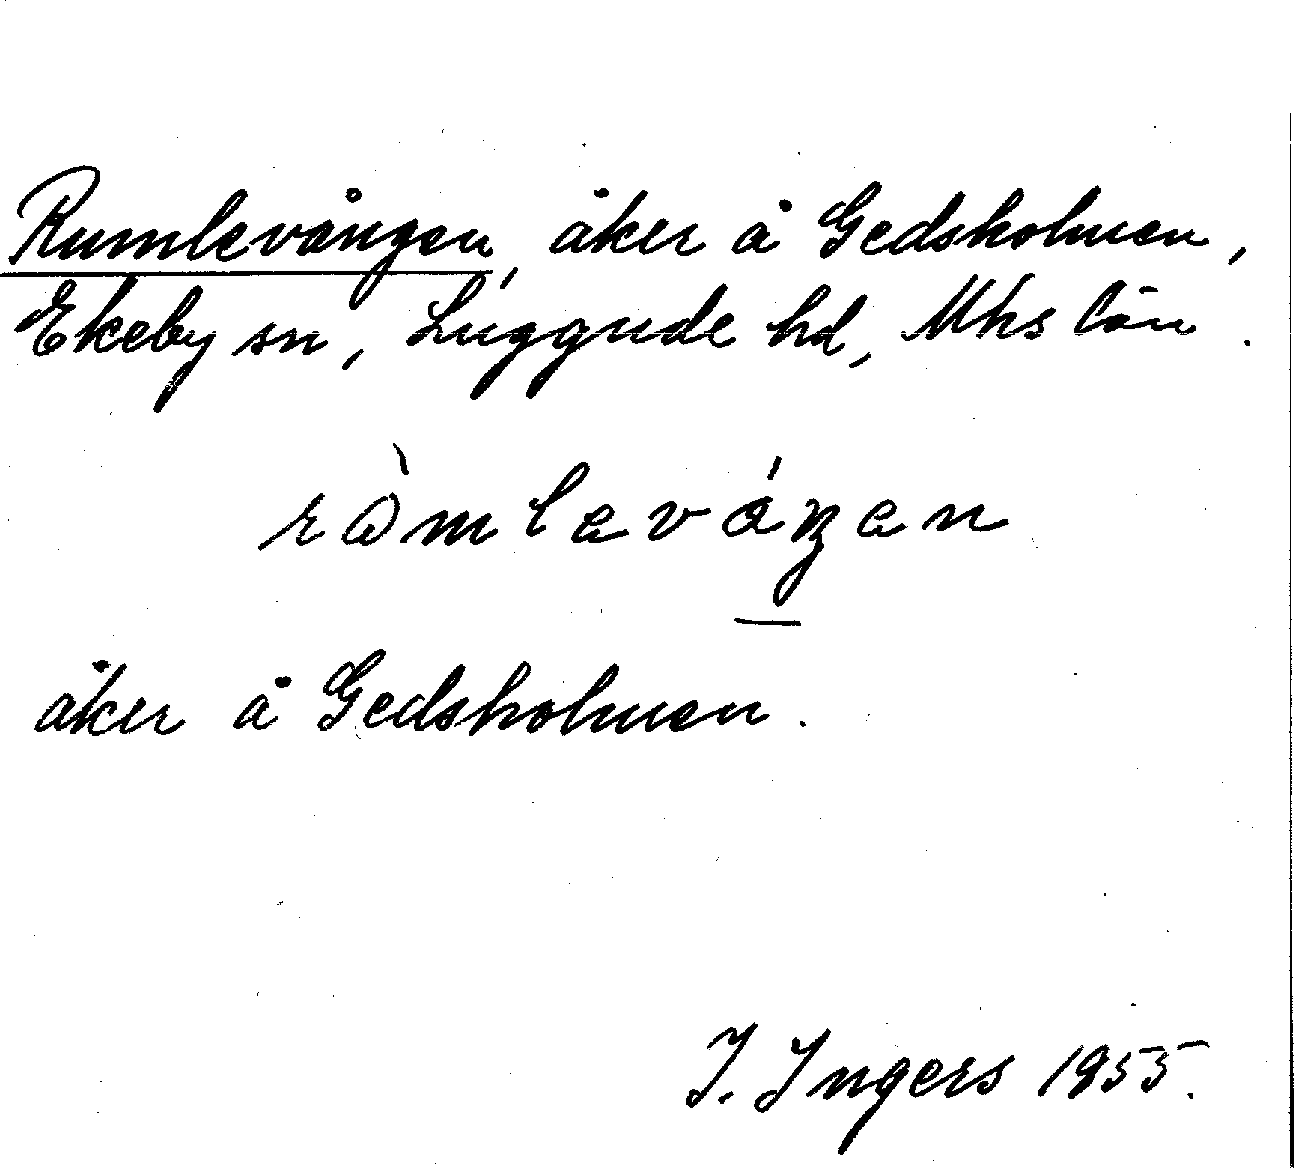 Rumlevången, åker å Gedsholmen,
Ekeby sn, Luggude hd, Mhs län.
råmlavåŋen
åker å Gedsholmen.
I. Ingers 1955.